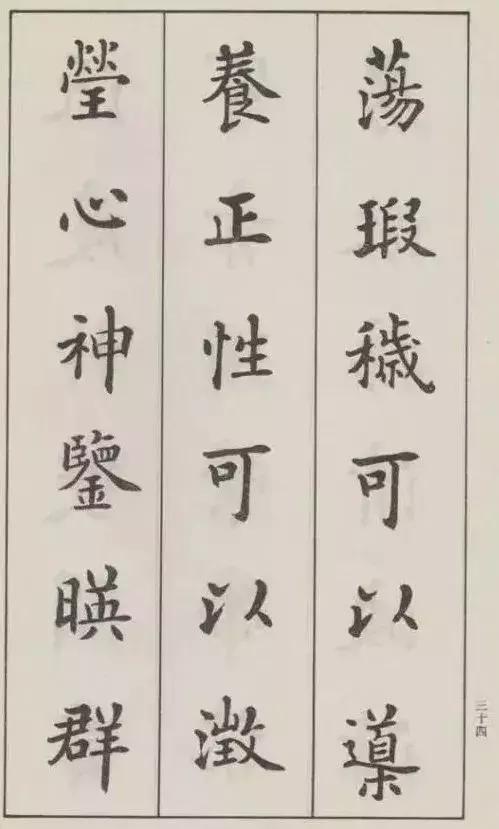 蕩瑕穢可以導
養正性可以澂
瑩心神鑒暎群
三十四